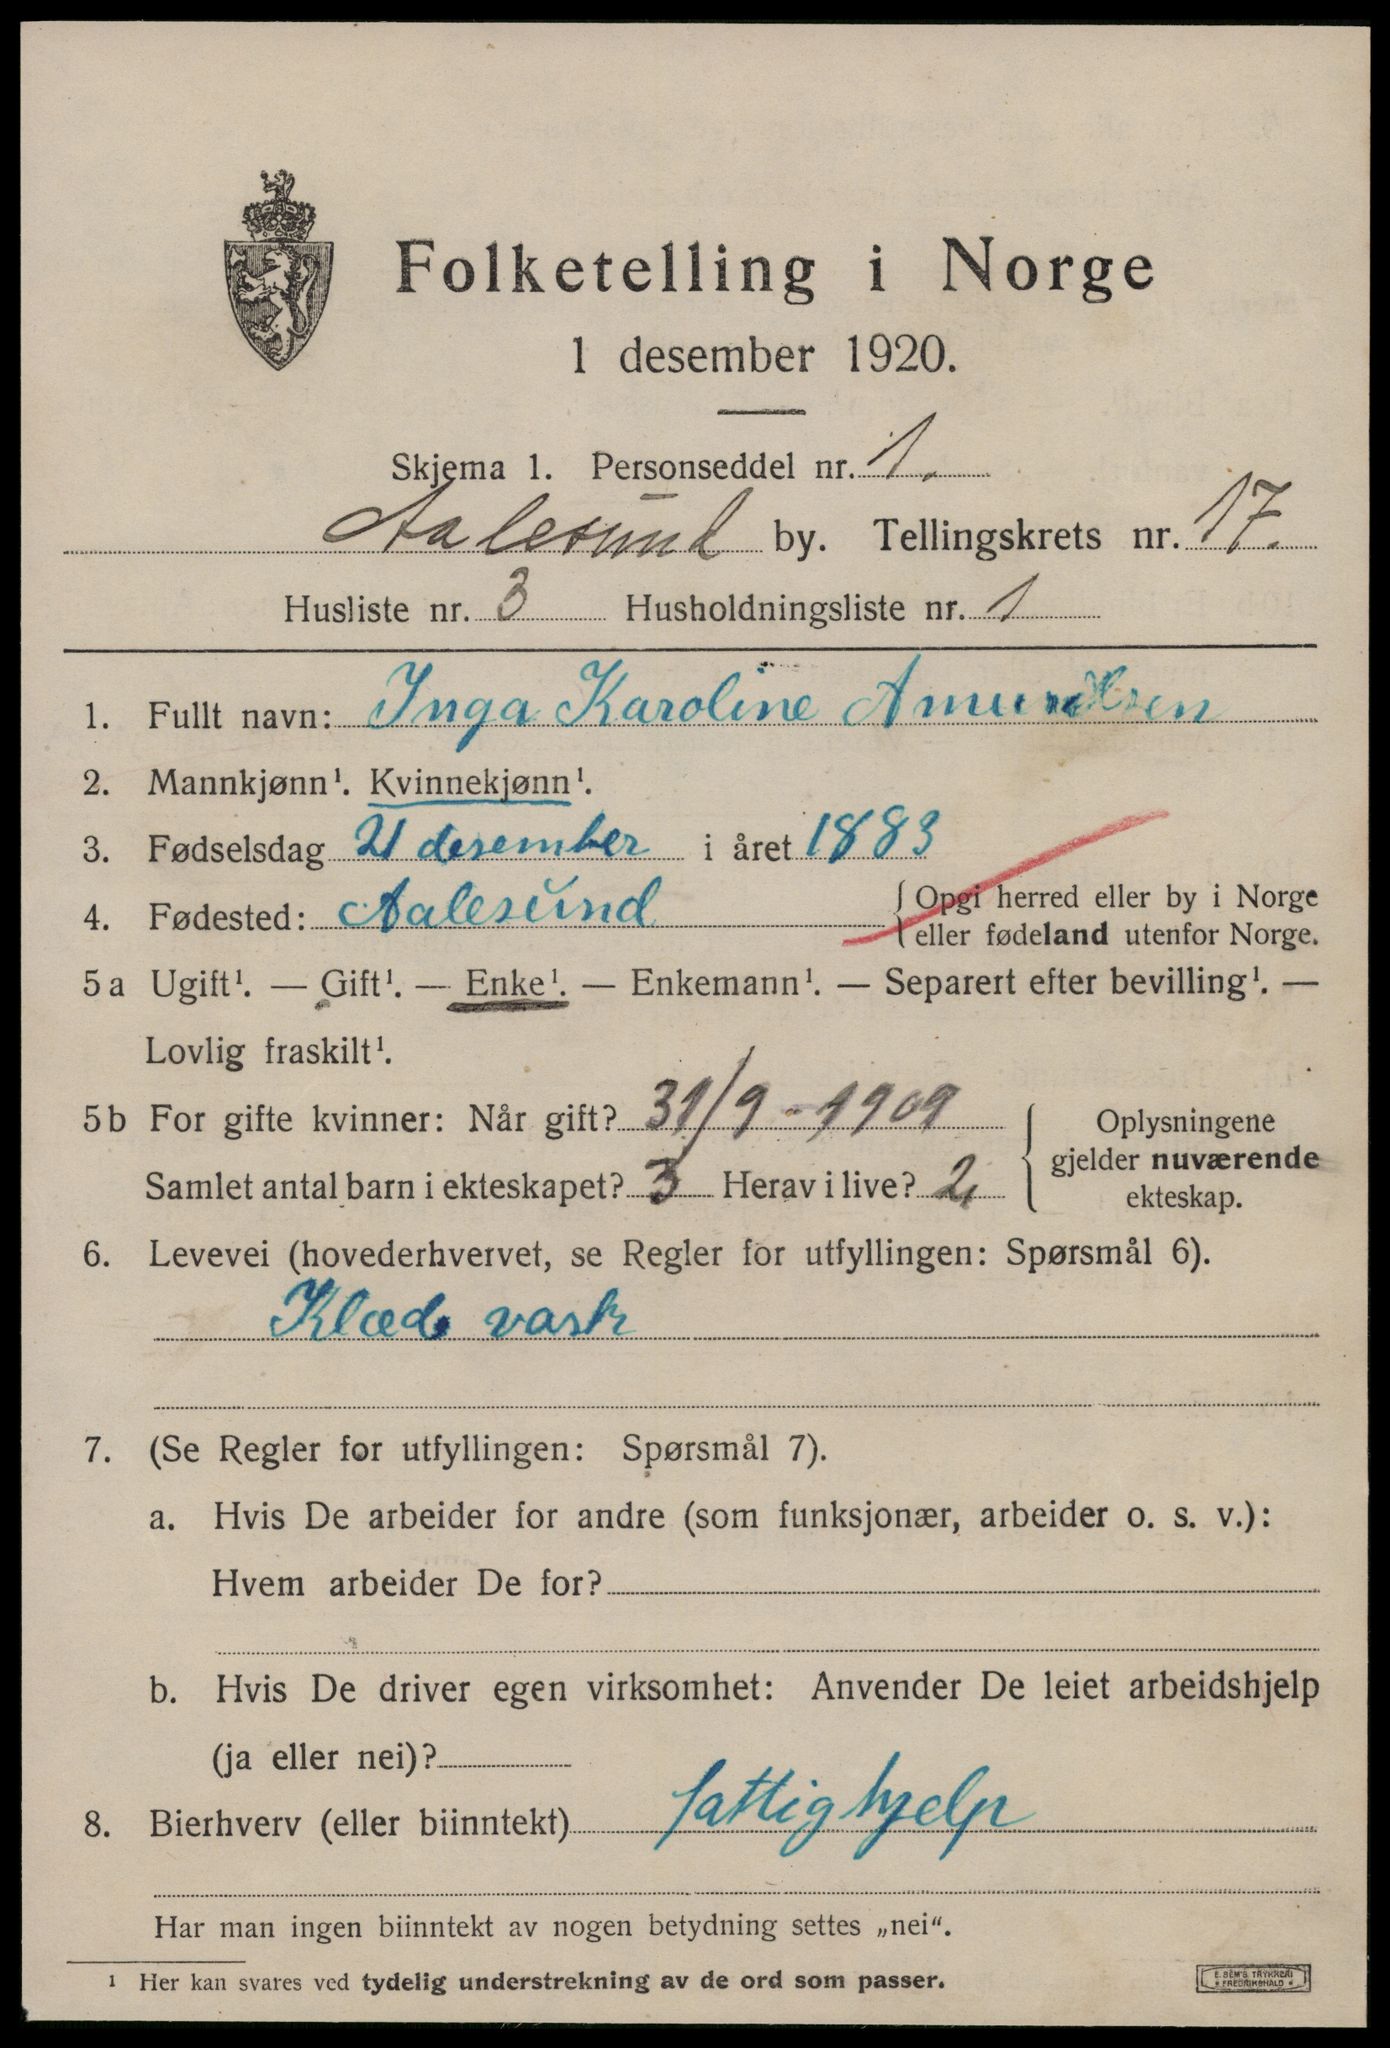 Folketelling i Norge
1 desember 1920.
Skjema 1. Personseddel nr. 1.
Aalesund by. Tellingskrets nr. 17.
Husliste nr. 3 Husholdningsliste nr. 1
1. Fullt navn: Inga Karoline Amundsen
2. Mannkjønn¹. Kvinnekjønn¹.
3. Fødselsdag 21 desember i året 1883
4. Fødested: Aalesund { Opgi herred eller by i Norge
eller fødeland utenfor Norge.
5 a Ugift¹. — Gift¹. — Enke¹. — Enkemann¹. — Separert efter bevilling¹. —
Lovlig fraskilt¹.
5 b For gifte kvinner: Når gift? 31/9 - 1909
Samlet antal barn i ekteskapet? 3 Herav i live? 2
{ Oplysningene
gjelder nuværende
ekteskap.
6. Levevei (hovederhvervet, se Regler for utfyllingen: Spørsmål 6).
Klæde vask
7. (Se Regler for utfyllingen: Spørsmål 7).
a. Hvis De arbeider for andre (som funksjonær, arbeider o. s. v.):
Hvem arbeider De for?
b. Hvis De driver egen virksomhet: Anvender De leiet arbeidshjelp
(ja eller nei)?
8. Bierhverv (eller biinntekt) fattighjelp
Har man ingen biinntekt av nogen betydning settes „nei“.
¹ Her kan svares ved tydelig understrekning av de ord som passer.
E. SEM'S TRYKKERI
FREDRIKSHALD